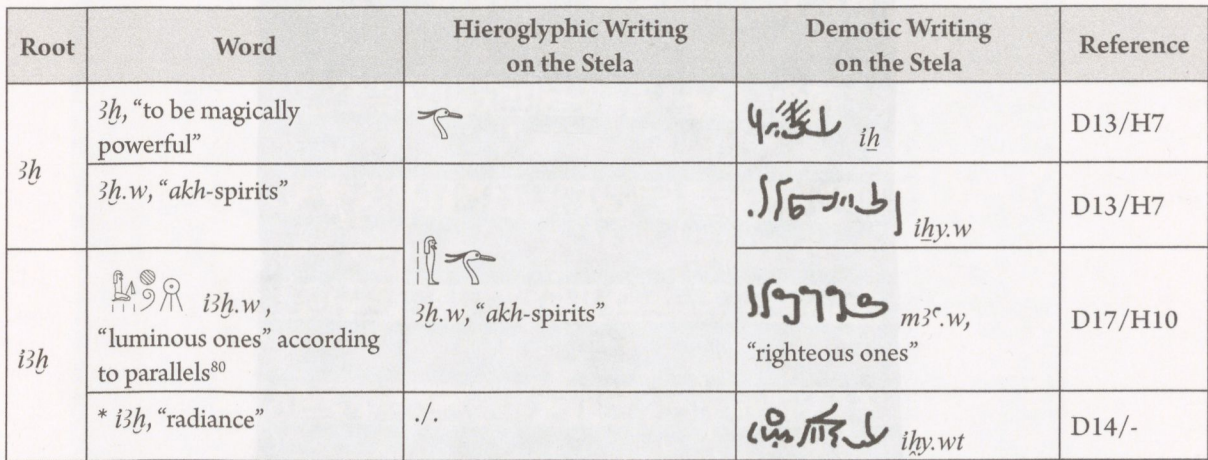 Root Word Hieroglyphic Writing on the Stela Demotic Writing on the Stela Reference
ꜣḫ
ꜣḫ, “to be magically powerful” iẖ D13/H7
ꜣḫ.w, “akh-spirits” iẖy.w D13/H7
ꜣḫ.w, “akh-spirits”
iꜣḫ
iꜣḫ.w, “luminous ones” according to parallels⁸⁰ mꜣꜥ.w, “righteous ones” D17/H10
* iꜣḫ, “radiance” ./. iḫy.wt D14/-